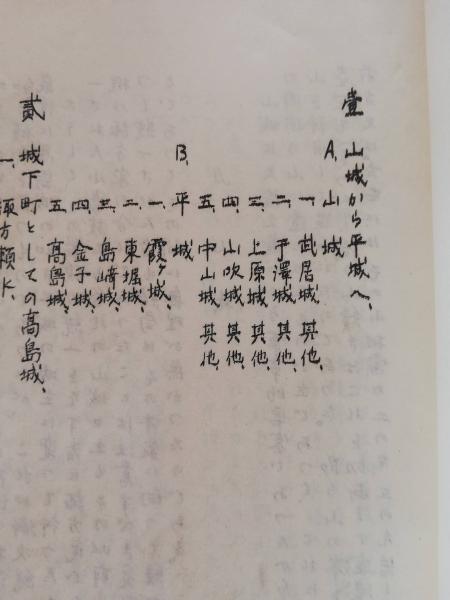 壹 山城から平城へ、
A、山城
一、武居城、其他、
二、干澤城、其他、
三、上原城、其他、
四、山吹城、其他、
五、中山城、其他、
B、平城
一、霞ヶ城、
二、東堀城、
三、島崎城、
四、金子城、
五、高島城、
貳 城下町としての高島城、
一、諏方頼水、